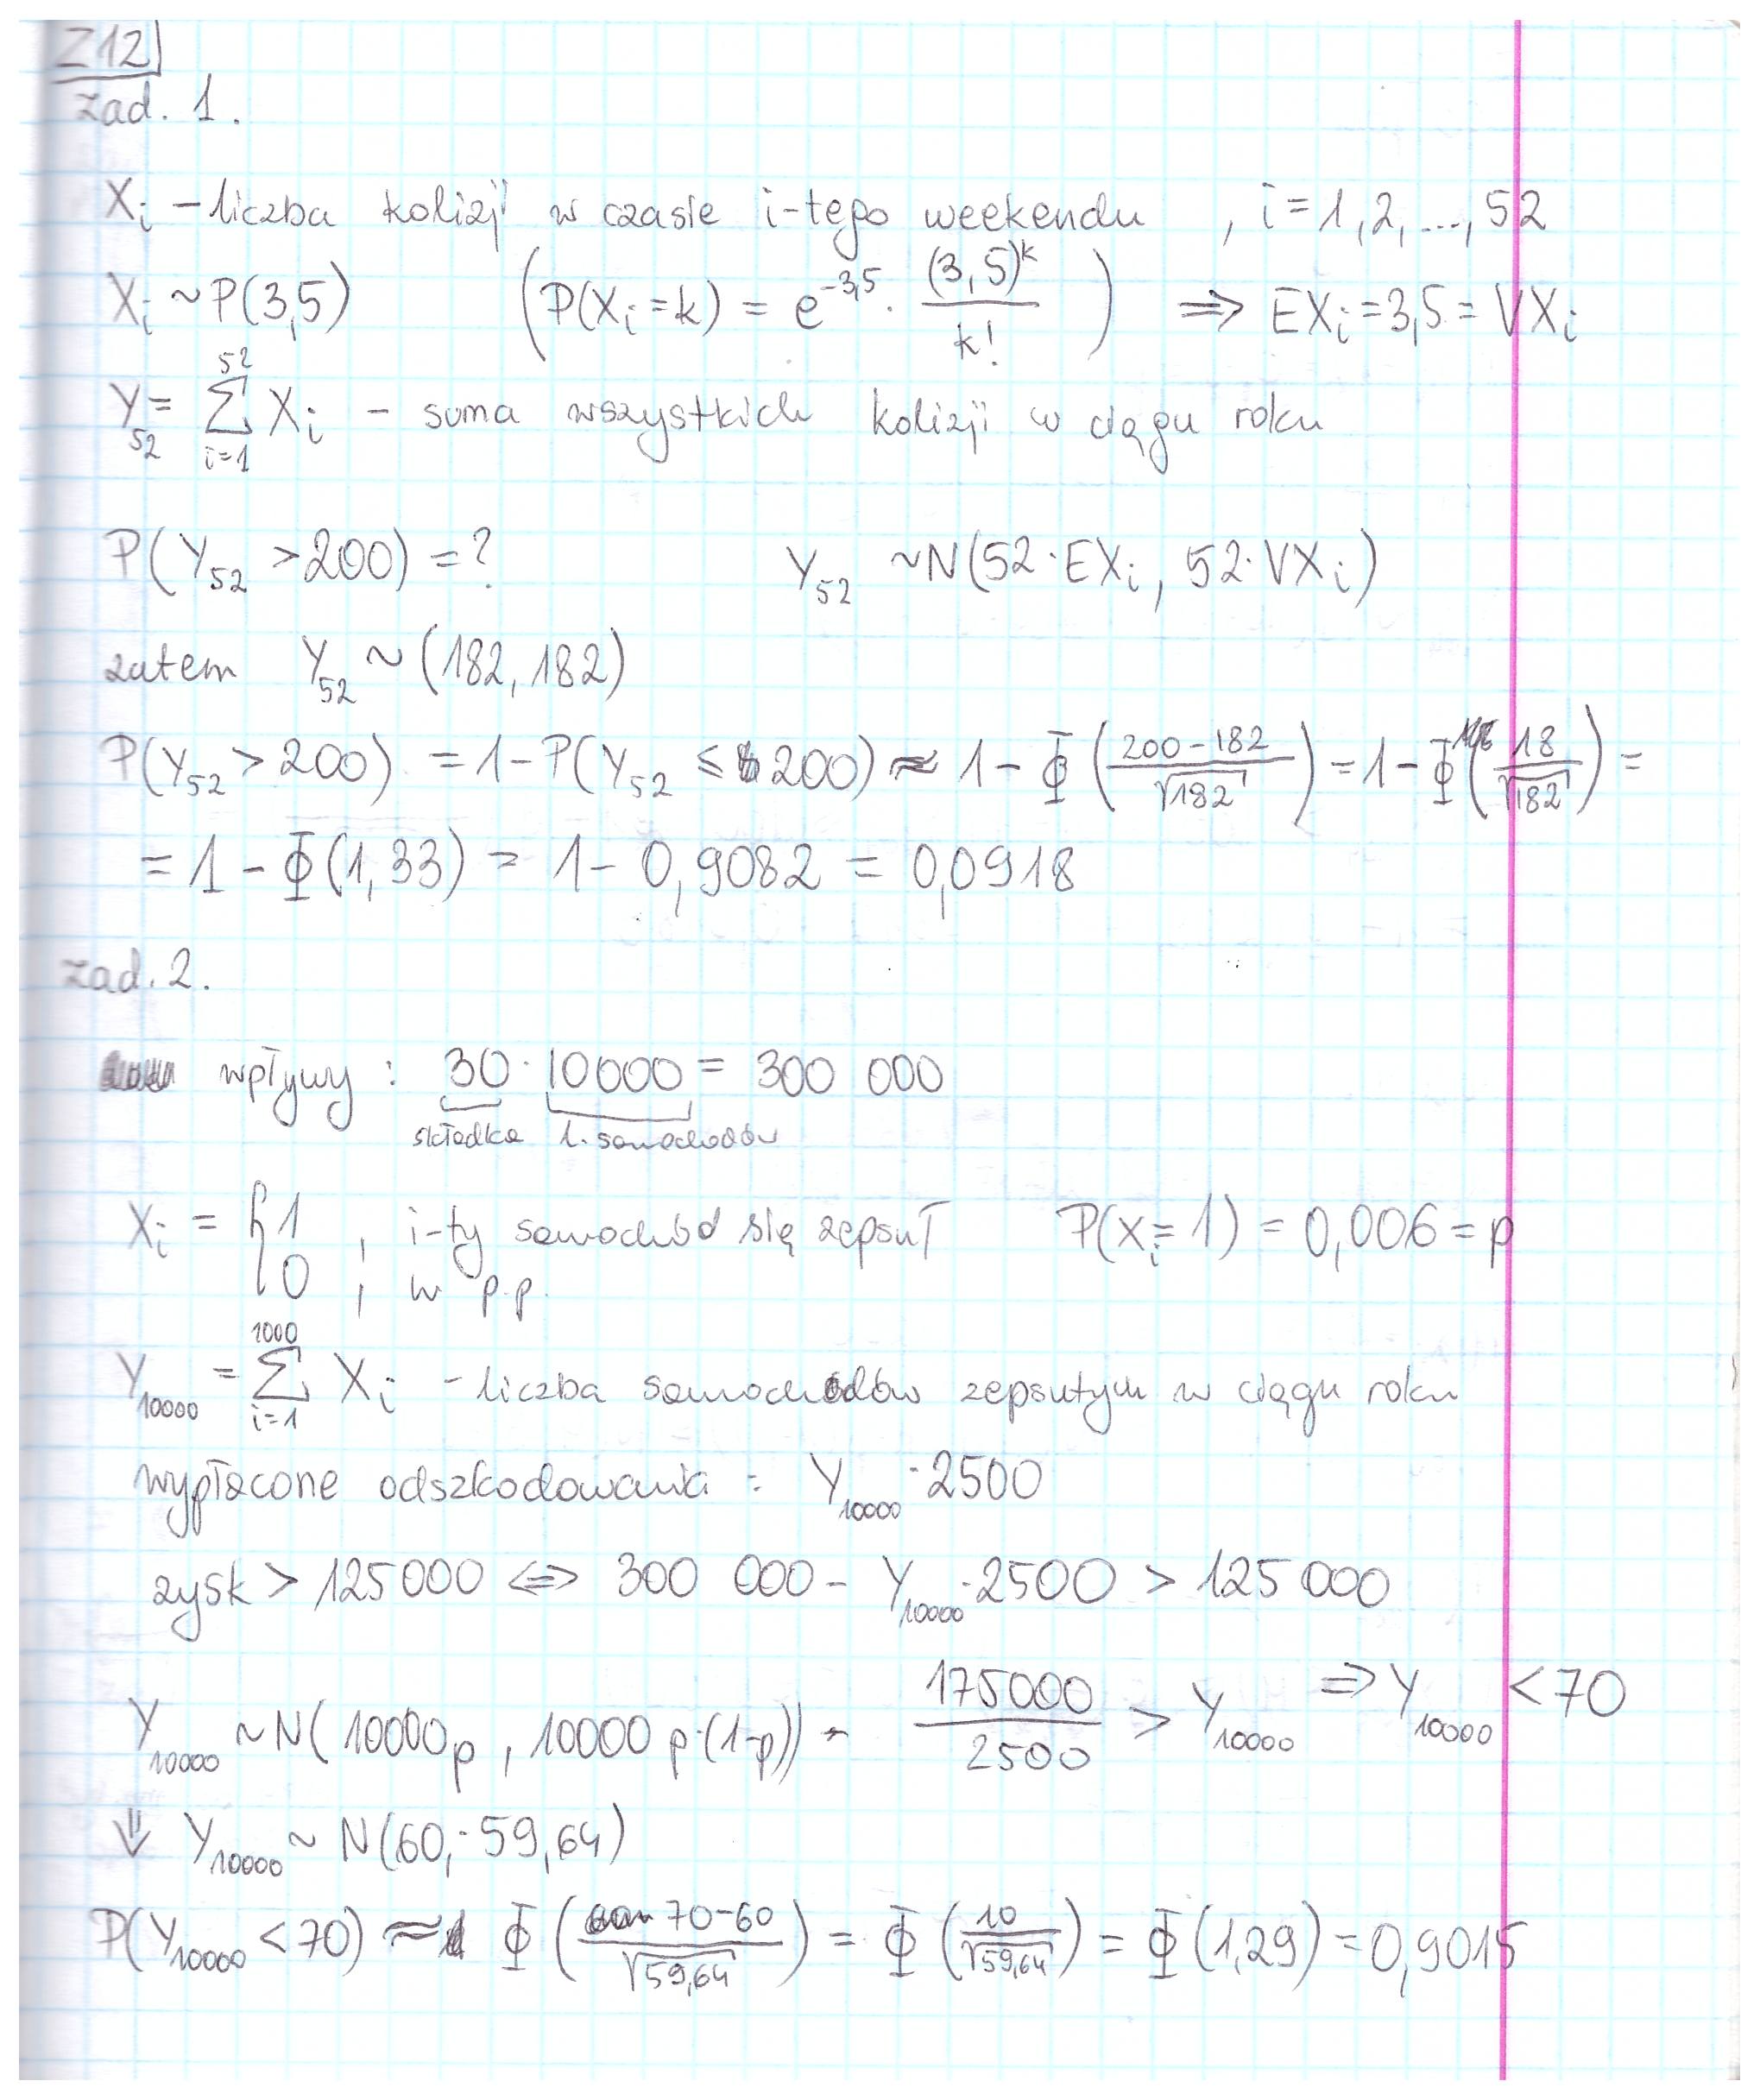 Z12
zad. 1.
Xi – liczba kolizji w czasie i-tego weekendu , i = 1, 2, ..., 52
Xi ~ P(3,5) (P(Xi = k) = e^-3,5 · (3,5)^k / k!) ⇒ EXi = 3,5 = VXi
Y52 = ∑_{i=1}^{52} Xi – suma wszystkich kolizji w ciągu roku
P(Y52 > 200) = ? Y52 ~ N(52·EXi, 52·VXi)
zatem Y52 ~ (182, 182)
P(Y52 > 200) = 1 – P(Y52 ≤ 200) ≈ 1 – Φ((200 – 182)/√182) = 1 – Φ(18/√182) =
= 1 – Φ(1,33) = 1 – 0,9082 = 0,0918
zad. 2.
wpływy : 30 · 10000 = 300 000
składka l. samochodów
Xi = { 1 , i-ty samochód się zepsuł P(Xi = 1) = 0,006 = p
0 , w p.p.
Y10000 = ∑_{i=1}^{1000} Xi – liczba samochodów zepsutych w ciągu roku
wypłacone odszkodowania : Y10000 · 2500
zysk > 125000 ⇔ 300 000 – Y10000 · 2500 > 125 000
Y10000 ~ N(10000p , 10000 p·(1-p)) – 175000/2500 > Y10000 ⇒ Y10000 < 70
⇓ Y10000 ~ N(60, 59,64)
P(Y10000 < 70) ≈ Φ((70 – 60)/√59,64) = Φ(10/√59,64) = Φ(1,29) = 0,9015